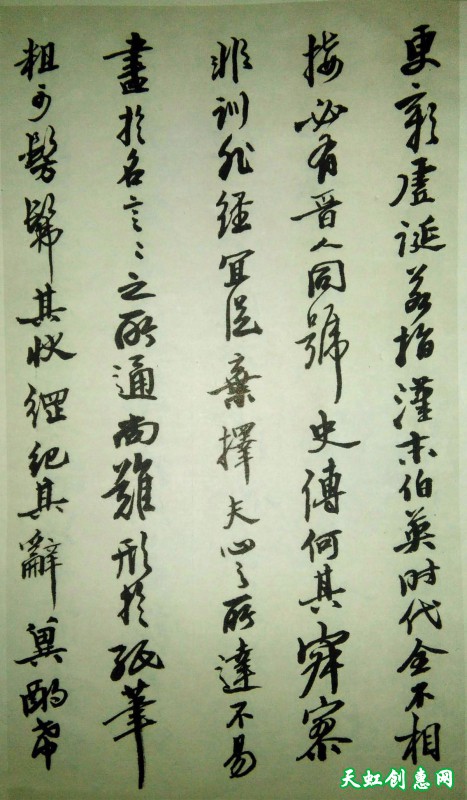 更彰虛誕若指漢末伯英时代全不相
接必有晉人同號史傳何其寂寥
非訓非經宜從棄擇夫心之所達不易
盡於名言〻之所通尚難形於紙筆
粗可髣髴其狀綱紀其辭冀酌希
天虹创惠网